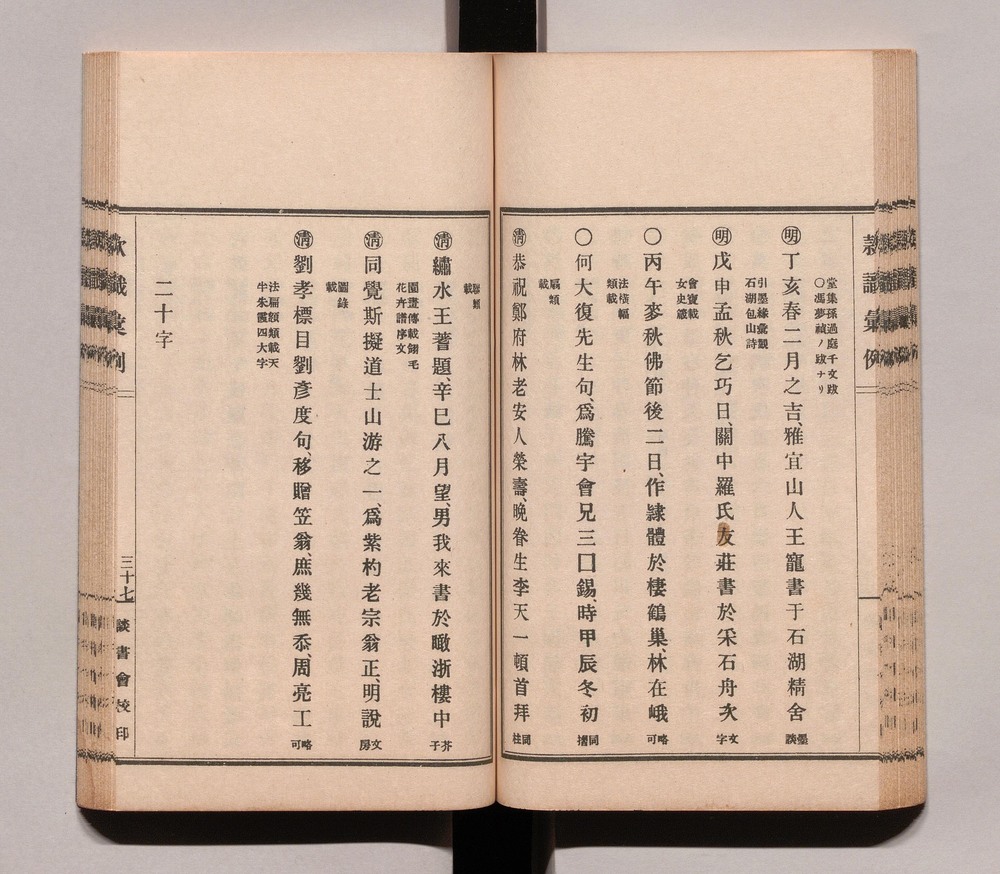 堂集孫過庭千文跋
○馮夢禎ノ跋ナリ
明丁亥春二月之吉、雅宜山人王寵書于石湖精舍 墨談
引墨緣彙觀
石湖包山詩
明戊申孟秋乞巧日、關中羅氏友莊書於采石舟次 文字
會寶載
女史箴
○丙午麥秋佛節後二日、作隷體於棲鶴巢、林在峨 略可
法橫幅
類載
○何大復先生句、爲騰宇會兄三囗錫、時甲辰冬初 同摺
清恭祝鄭府林老安人榮壽、晩眷生李天一頓首拜 同柱
聯類
載
清繡水王蓍題、辛巳八月望、男我來書於瞰浙樓中 芥子
園畫傳載翎毛
花卉譜序文
清同覺斯擬道士山游之一、爲紫杓老宗翁正、明說 文房
圖錄
載
清劉孝標目劉彥度句、移贈笠翁、庶幾無忝、周亮工 略可
法扁額類載天
半朱霞四大字
二十字
三十七
談書會校印